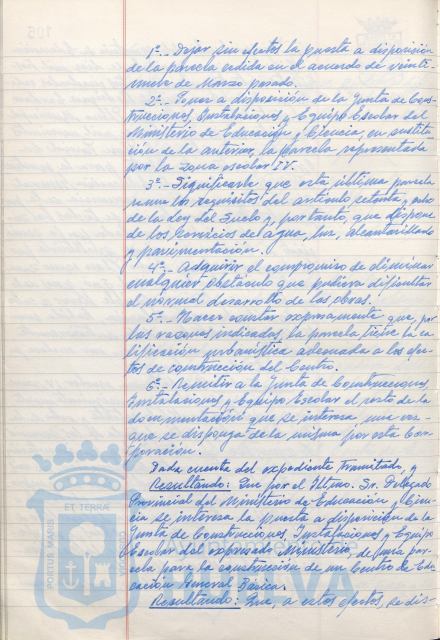 1º.- Dejar sin efectos la puesta a disposición
de la parcela cedida en el acuerdo de veinti-
nueve de Marzo pasado.
2º.- Poner a disposición de la Junta de Cons-
trucciones, Instalaciones y Equipo Escolar del
Ministerio de Educación y Ciencia, en sustitu-
ción de la anterior, la parcela representada
por la zona escolar IV.
3º.- Significarle que esta última parcela
reune los requisitos del artículo setenta y ocho
de la Ley del Suelo y, por tanto, que dispone
de los servicios de agua, luz, alcantarillado
y pavimentación.
4º.- Adquirir el compromiso de eliminar
cualquier obstáculo que pudiera dificultar
el normal desarrollo de las obras.
5º.- Hacer constar expresamente que, por
las razones indicadas, la parcela tiene la ca-
lificación urbanística adecuada a los efec-
tos de construcción del Centro.
6º.- Remitir a la Junta de Construcciones,
Instalaciones y Equipo Escolar el resto de la
documentación que se interesa una vez
que se disponga de la misma por esta Cor-
poración.
Dada cuenta del expediente tramitado, y
Resultando: Que por el Iltmo. Sr. Delegado
Provincial del Ministerio de Educación y Cien-
cia se interesa la puesta a disposición de la
Junta de Construcciones, Instalaciones y Equipo
Escolar del expresado Ministerio, de una par-
cela para la construcción de un Centro de Edu-
cación General Básica.
Resultando: Que, a estos efectos, se dis-
ET TERRA
PORTUS MARIS